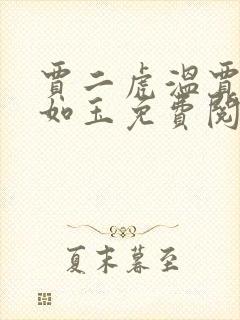 贾二虎温贾
如玉免费阅
夏末暮至